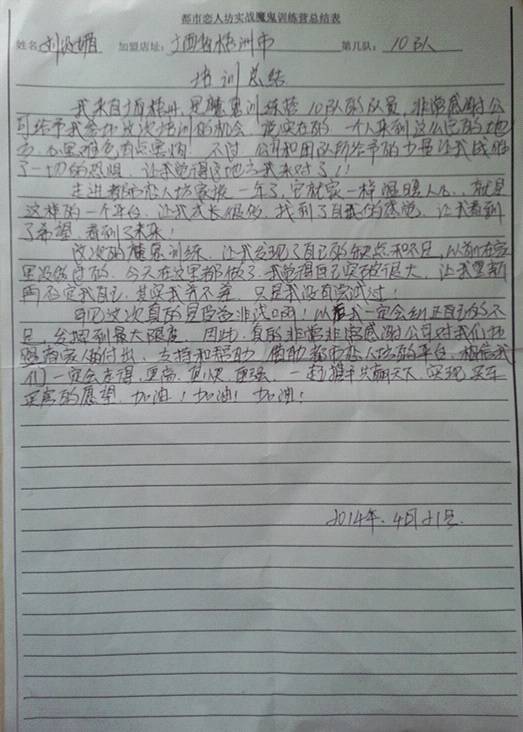 都市恋人坊实战魔鬼训练营总结表
姓名: 刘 媚 加盟店址: 广西省梧洲市 第几队: 10队
培训总结
我来自广西梧州,是魔鬼训练营10队的队员,非常感谢公
司给予我参加这次培训的机会,说实在的,一个人来到这么远的地
方,心里难免有点害怕,不过公司和团队所给予的力量让我战胜
了一切的恐惧,让我觉得这地方我来对了!!
走进都市恋人坊家族一年了,它就象一样温暖人心,就是
这样的一个平台,让我成长很多,找到了自我的感觉,让我看到
了希望,看到了未来!
这次的魔鬼训练,让我发现了自己的缺点和不足,以前在家
里没做过的,今天在这里都做了,我觉得自己突破很大,让我重新
两 定我自己,其实我并不差,只是我没有尝试过!
可见这次真的是 非浅啊!以后我一定会纠正自己的不
足,发挥到最大限度,因此,真的非常非常感谢公司对我们加
盟商家人的付出,支持和帮助,借助都市恋人坊的平台,相信我
们一定会走得更高,更快,更强,一起携手共赢天下,实现买车
买房的愿望,加油!加油!加油!
2014年.4月21号.